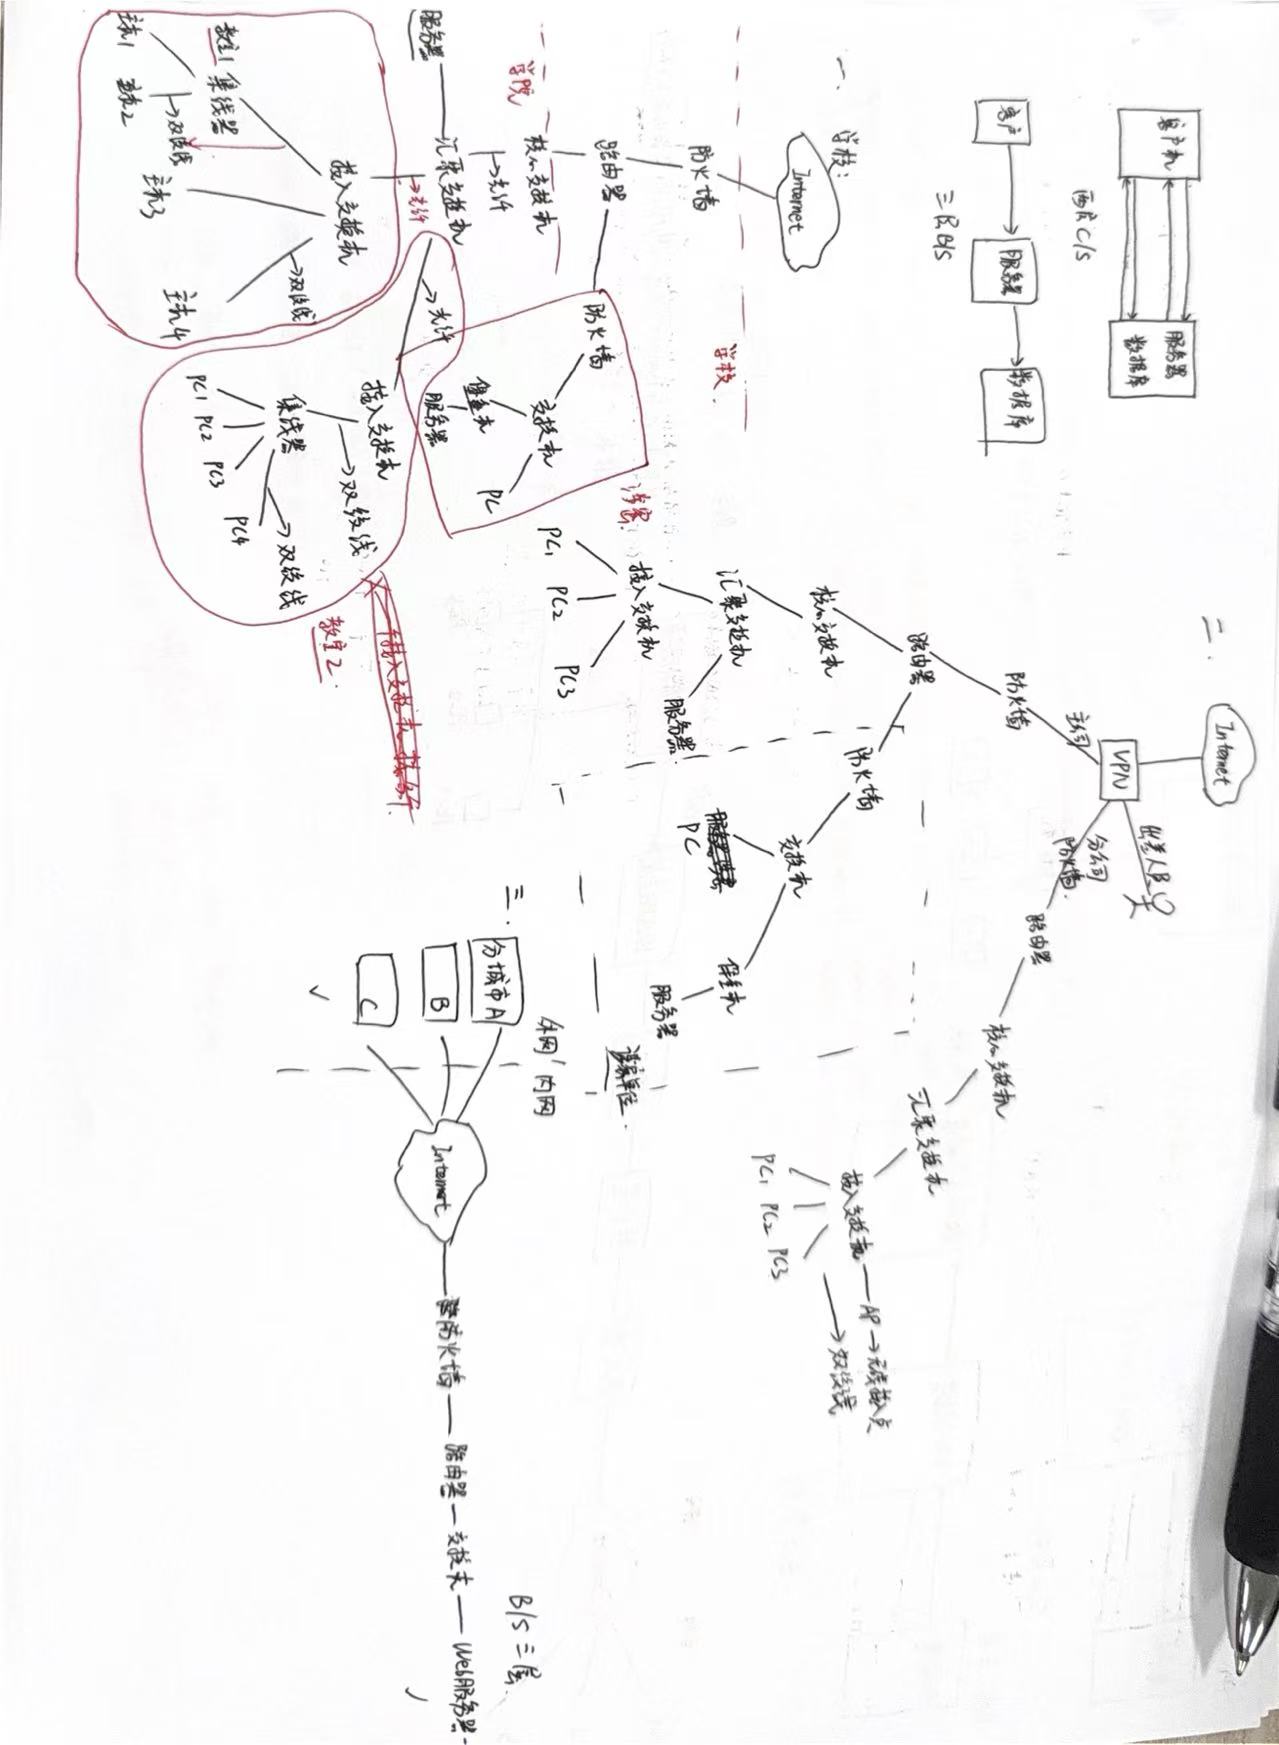 客户机
两层C/S
服务器
数据库
客户
服务器
数据库
三层B/S
一、
学校:
Internet
防火墙
学校
路由器
防火墙
交换机
堡垒机
服务器
PC
涉密
学院
核心交换机
光纤
服务器
汇聚交换机
光纤
光纤
接入交换机
教室1
集线器
双绞线
双绞线
主机1
主机2
主机3
主机4
接入交换机
双绞线
集线器
双绞线
PC1
PC2
PC3
PC4
教室2.
二.
Internet
VPN
出差人员
主公司
防火墙
路由器
核心交换机
汇聚交换机
服务器
接入交换机
PC1
PC2
PC3
防火墙
交换机
PC
堡垒机
服务器
涉密单位.
分公司
防火墙.
路由器
核心交换机
汇聚交换机
接入交换机
AP→无线接入点
双绞线
PC1 PC2 PC3
三.
分城市A
B
C
外网/内网
Internet
防火墙
路由器
交换机
Web服务器.
B/S三层.